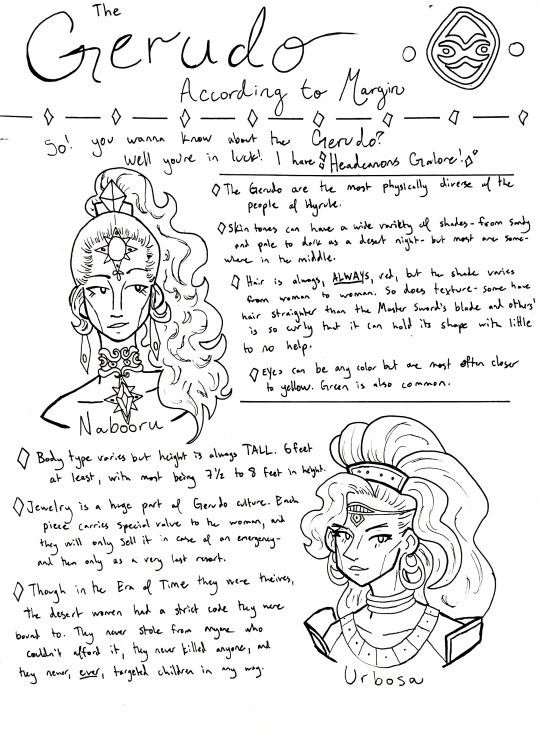 The
Gerudo
According to Margin
So! you wanna know about the Gerudo?
Well you're in luck! I have Headcanons Galore!
The Gerudo are the most physically diverse of the
people of Hyrule.
Skin tones can have a wide variety of shades - from sandy
and pale to dark as a desert night - but most are some-
where in the middle.
Hair is always, ALWAYS, red, but the shade varies
from woman to woman. So does texture - some have
hair straighter than the Master Sword's blade and others'
is so curly that it can hold its shape with little
to no help.
Eyes can be any color but are most often closer
to yellow. Green is also common.
Nabooru
Body type varies but height is always TALL. 6 feet
at least, with most being 7½ to 8 feet in height.
Jewelry is a huge part of Gerudo culture. Each
piece carries special value to the woman, and
they will only sell it in case of an emergency -
and then only as a very last resort.
Though in the Era of Time they were theives,
the desert women had a strict code they were
bound to. They never stole from anyone who
couldn't afford it, they never killed anyone, and
they never, ever, targeted children in any way.
Urbosa